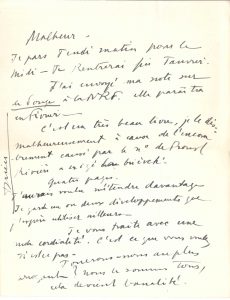 Malheur -
Je pars Lundi matin pour le
Midi - Je rentrerai fin Janvier.
J'ai envoyé ma note sur
à la NRF. elle paraîtra
en février.
C'est un très beau livre, je le dis
malheureusement, à cause de l'encom-
brement causé par le n° de Proust
Rivière a exigé
Quatre pages.
J'aurais voulu m'étendre davantage
Je garde un ou deux développements que
j'espère utiliser ailleurs.
Je vous traite avec une
rude cordialité. C'est ce que vous voulez
n'est-ce pas -
au plus
nous le sommes tous,
cela devient banalité.